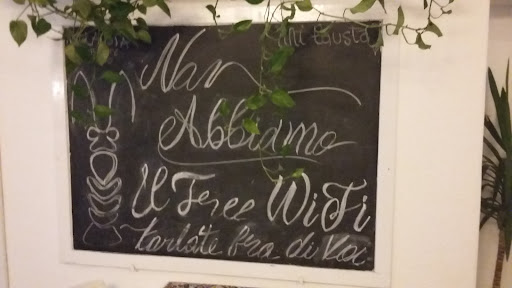 mi gusta
Non
Abbiamo
il Free WiFi
Parlate fra di Voi